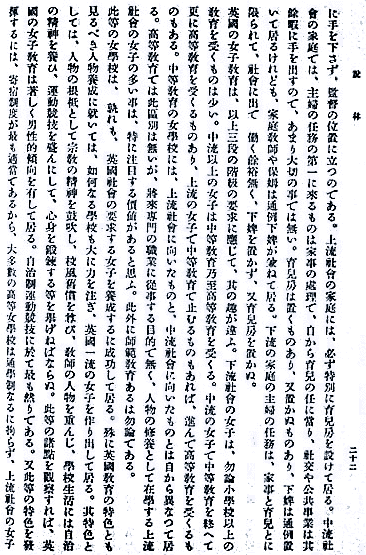 說林
二十二
に手を下さず、監督の位置に立つのである。上流社會の家庭には、必ず特別に育兒房を設けて居る。中流社
會の家庭では、主婦の任務の第一に來るものは家事の處理で、自から育兒の任に當り、社交や公共事業は其
餘暇に手を出すので、あまり大切の事では無い。育兒房は置くものあり、又置かぬものあり、下婢は通例置
いて居るけれども、家庭敎師や保姆は通例下婢が兼ねて居る。下流の家庭の主婦の任務は、家事と育兒とに
限られて、社會に出て働く餘裕無く、下婢を置かず、又育兒房を置かぬ。
英國の女子敎育は、以上三段の階級の要求に應じて、其の趣が違ふ。下流社會の女子は、勿論小學校以上の
敎育を受くものは少い。中流以上の女子は中等敎育乃至高等敎育を受くる。中流の女子で中等敎育を終へて
更に高等敎育を受くるものあり、上流の女子で中等敎育で止むるものもあれば、進んで高等敎育を受くるも
のもある。中等敎育の女學校には、上流社會に向いたものと、中流社會に向いたものとは自から異なつて居
る。高等敎育では此區別は無いが、將來專門の職業に從事する目的で無く、人物の修養として在學する上流
社會の女子の多い事は、特に注目する價値があると思ふ。此外に師範敎育あるは勿論である。
此等の女學校は、孰れも、英國社會の要求する女子を養成するに成功して居る。殊に英國敎育の特色とも
見るべき人物養成に就いては、如何なる學校も大に力を注ぎ、英國一流の女子を作り出して居る。其特色と
しては、人物の根柢として宗敎の精神を鼓吹し、校風舊慣を尊び、敎師の人物を重んじ、學校生活には自治
の精神を養ひ、運動競技を盛んにして、心身を鍛鍊する等を擧げねばならぬ。此等の諸點を觀察すれば、英
國の女子敎育は著しく男性的傾向を有して居る。自治制運動競技に於て最も然りである。又此等の特色を發
揮するには、寄宿制度が最も適當であるから、大多數の高等女學校は通學制なるに拘らず、上流社會の女子